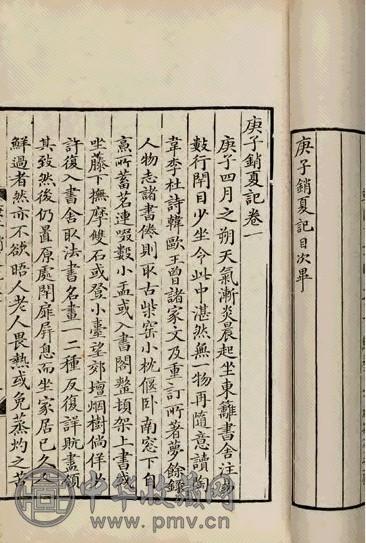 庚子銷夏記目次畢
庚子銷夏記卷一
庚子四月之朔天氣漸炎晨起坐東籬書舍注易
數行閉目少坐令此中湛然無一物再隨意讀陶
韋李杜詩韓歐王曾諸家文及重訂所著夢餘錄
人物志諸書倦則取古柴窑小枕偃卧南窓下自
烹所蓄茗連啜數小盂或入書閣整頓架上書或
坐藤下撫摩雙石或登小臺望郊壇烟樹徜佯少
許復入書舍取法書名畫一二種反復詳翫盡領
其致然後仍置原處閉扉屏息而坐家居已久人
鮮過者然亦不欲晤人老人畏熱或免蒸灼之苦
中华收藏网
www.pmv.cn